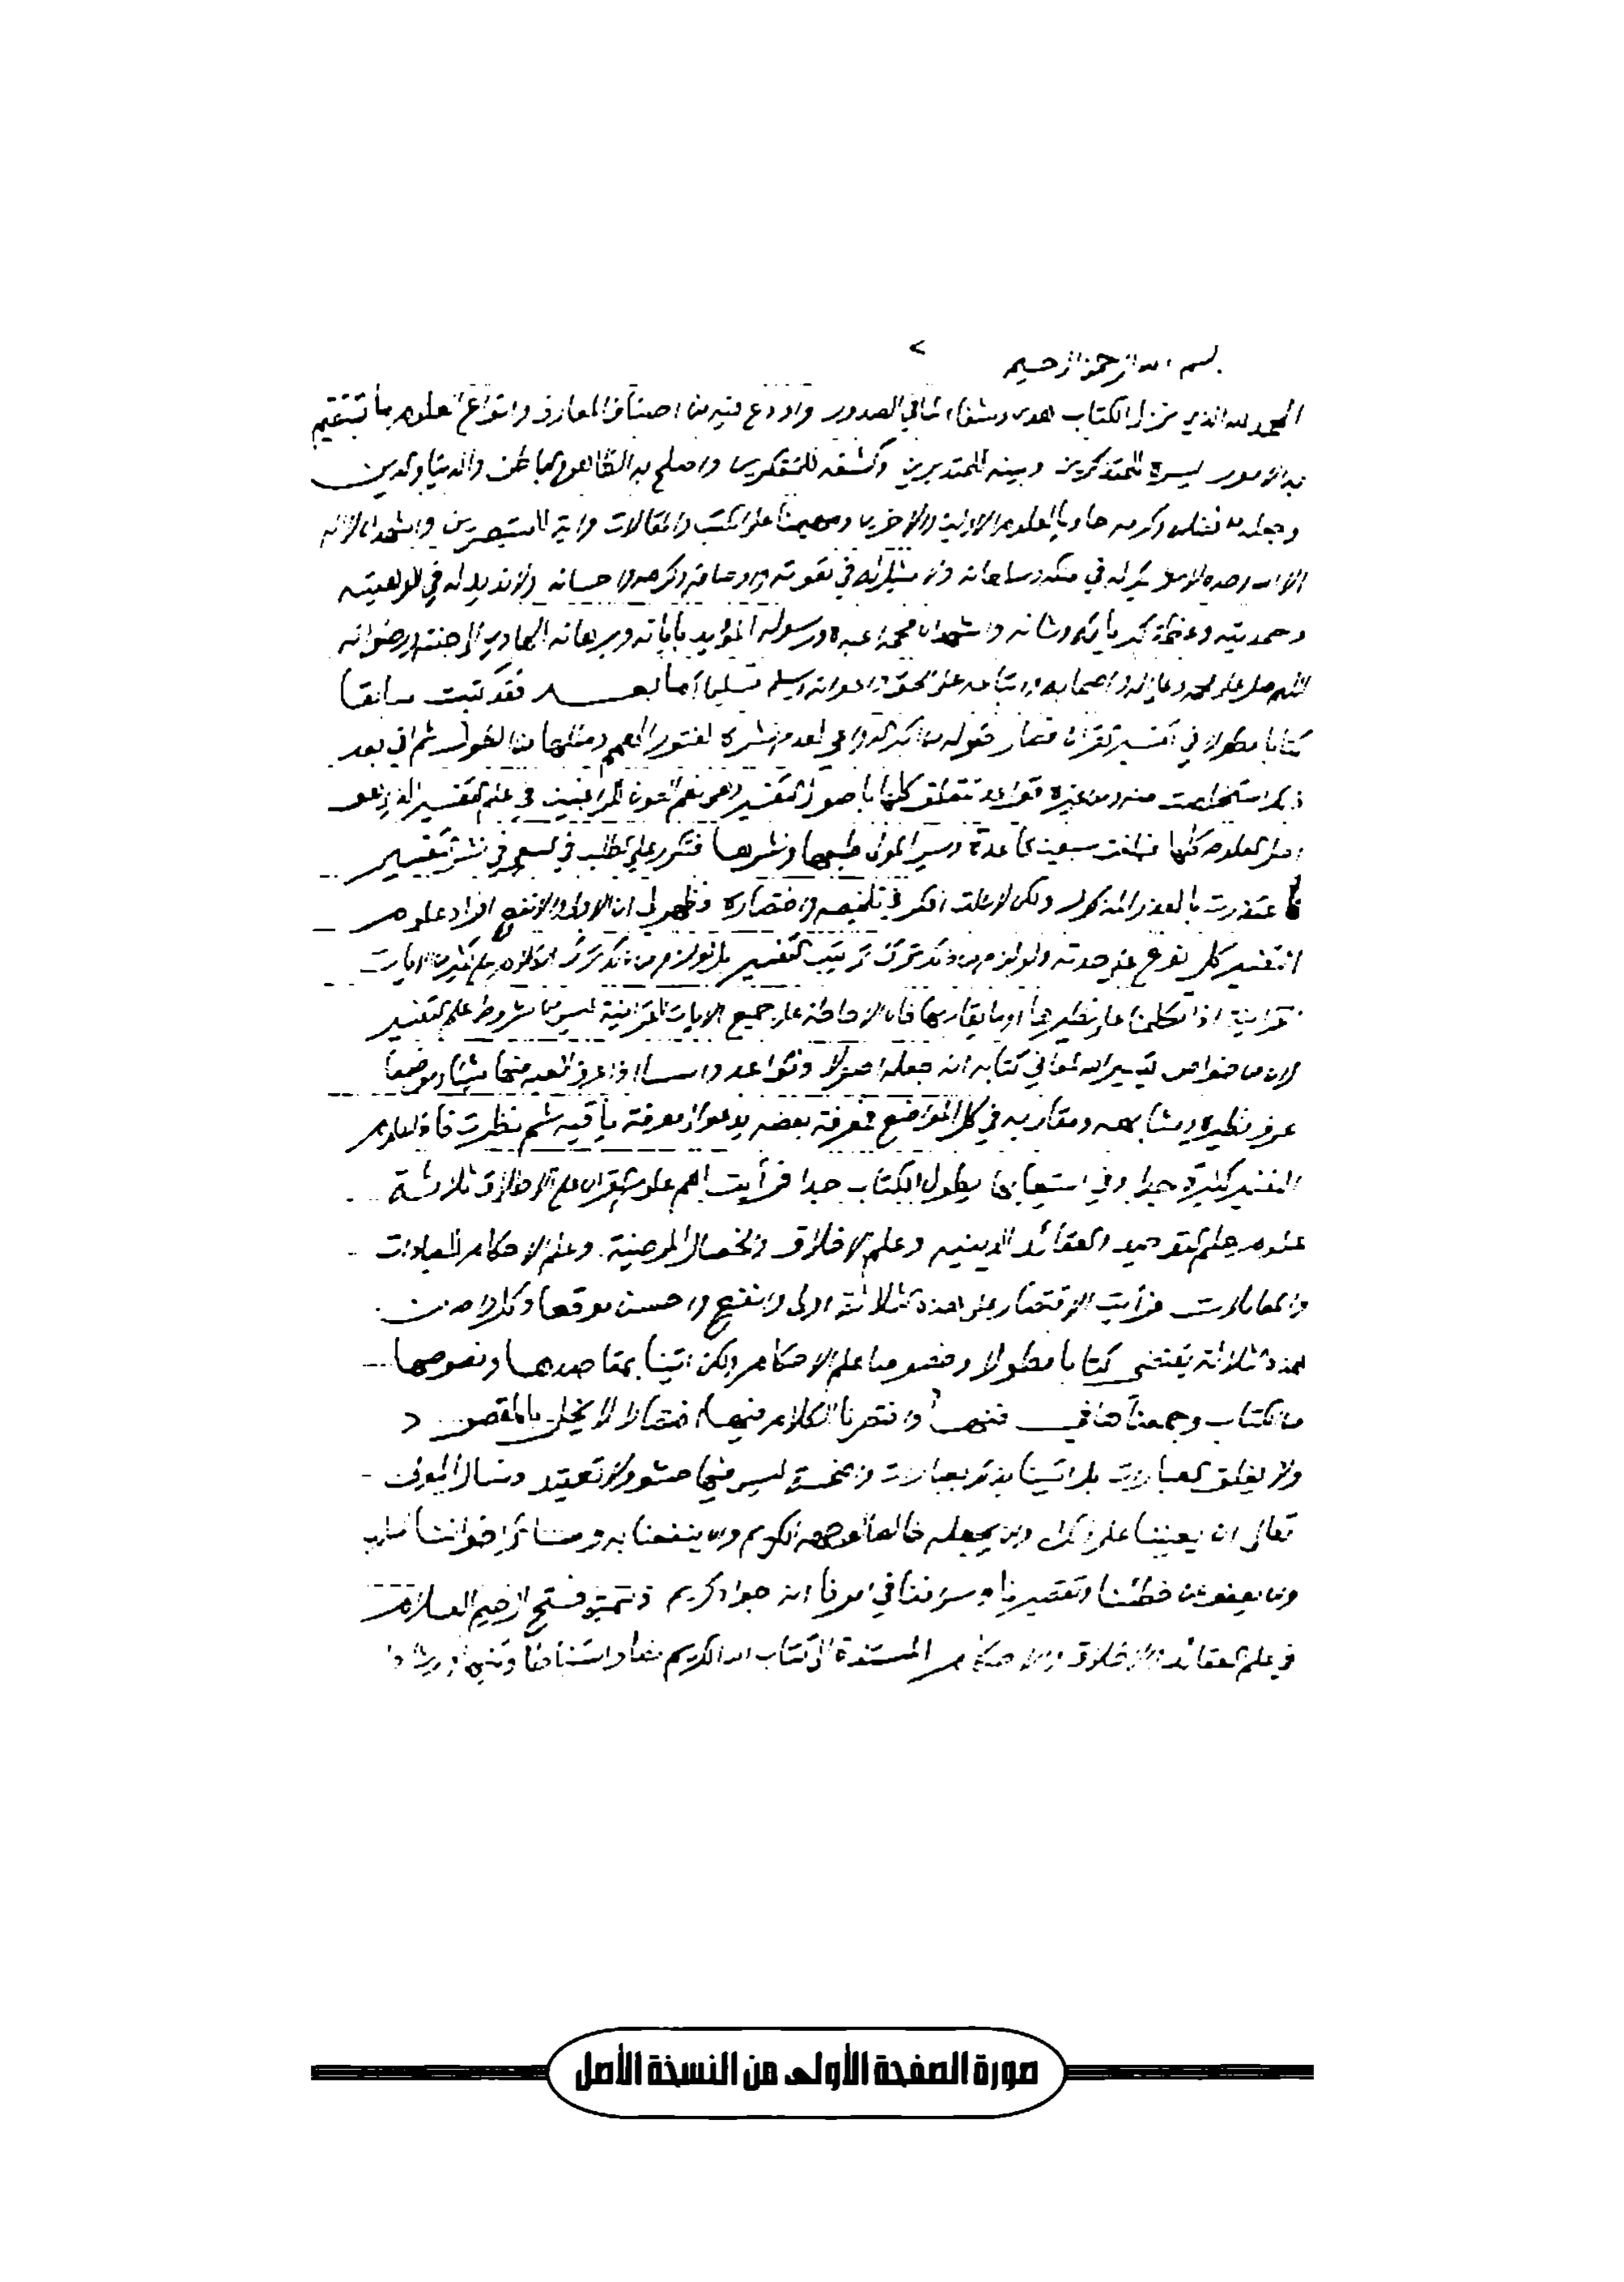 بسم الله الرحمن الرحيم
الحمد لله الذي نزل الكتاب هدى وشفاء لما في الصدور واودع فيه من اصناف المعارف وانواع العلوم ما تستقيم
به الامور يسره للمتذكرين وبينه للمتدبرين وكشفه للمتفكرين واصلح به الظاهر والباطن والدنيا والدين
وجعله من فضله وكرمه حاويا لعلوم الاولين والاخرين ومهيمنا على الكتب والمقالات واية للمستبصرين واشهد ان لا اله
الا الله وحده لا شريك له في ملكه وسلطانه ولا مثيل له في نعوته واوصافه وكرمه واحسانه ولا نديد له في الوهيته
وحمديته وعظمة كبريائه وشانه واشهد ان محمدا عبده ورسوله المؤيد باياته وبرهانه الهادي الى جنته ورضوانه
اللهم صل على محمد وعلى اله واصحابه واتباعه على الحق واعوانه وسلم تسليما اما بعد فقد كتبت سابقا
كتابا مطولا في تفسير القران فصار طوله من اكبر الدواعي لعدم نشره لفتور الهمم ومللها من الطول ثم اني بعد
ذلك استخلصت منه ومن غيره قواعد تتعلق كلها باصول التفسير وهي نعم العون للراغبين في علم التفسير الذي هو
اصل العلوم كلها فبلغت سبعين قاعدة ويسر المولى طبعها ونشرها فتكرر علي الطلب في السعي في نشر التفسير
فاعتذرت بالعذر المذكور ولكن لا زلت افكر في تلخيصه واختصاره فظهر لي ان الاولى والانفع افراد علوم
التفسير كل نوع على حدته ولو لزم من ذلك ترك ترتيب التفسير بل ولو لزم من ذلك ترك الكلام على كثير من الايات
القرانية اذا تكلمنا على نظيرها او ما يقاربها فان الاحاطة على جميع الايات القرانية ليس من شروط علم التفسير
لان من خواص تيسير الله لمعاني كتابه انه جعله اصولا وقواعد واسسا اذا عرف العبد منها شيئا وموضعا
عرف نظيره ومشابهه ومقاربه في كل المواضع فمعرفة بعضه يدعو الى معرفة باقيه ثم نظرت فاذا علوم
التفسير كثيرة جدا وفي استيعابها يطول الكتاب جدا فرأيت اهم علوم القران على الاطلاق ثلاثة
علوم علم التوحيد والعقائد الدينيه وعلم الاخلاق والخصال المرضية وعلم الاحكام للعبادات
والمعاملات فرأيت الاقتصار على هذه الثلاثة اولى وانفع واحسن موقعا وكل واحد من
هذه الثلاثة يقتضي كتابا مطولا وخصوصا علم الاحكام ولكن اتينا بمقاصدها ونصوصها
من الكتاب وجمعناها في فنها واختصرنا الكلام فيها اختصارا لا يخل بالمقصود
ولا يغلق العبارت بل اتينا بذلك بعبارات واضحة ليس فيها حشو ولا تعقيد ونسال المولى
تعالى ان يعيننا على ذلك وان يجعله خالصا لوجهه الكريم وان ينفعنا به وسائر اخواننا
وان يعفو عن خطئنا وتقصيرنا واسرافنا في امرنا انه جواد كريم وسميته فتح الرحيم العلام
في علم العقائد والاخلاق والاحكام المستندة الى كتاب الله الكريم نصا واستنباطا وتنبيها وارشادا
صورة الصفحة الأولى من النسخة الأصل